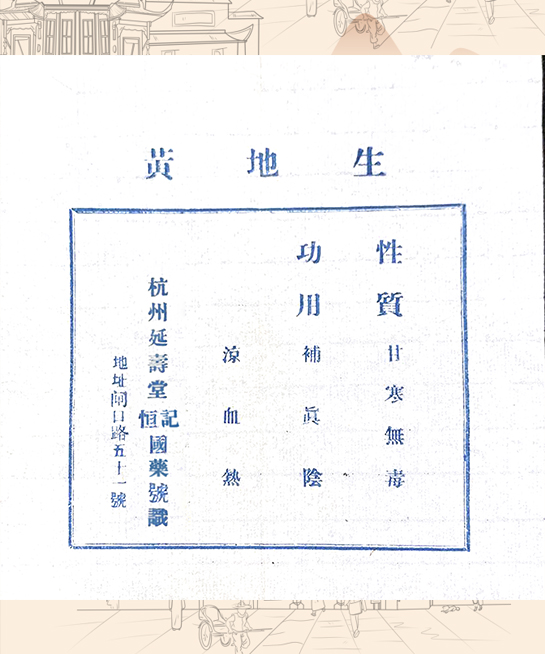 生地黃
性質 甘寒無毒
功用 補眞陰
涼血熱
杭州延壽堂恒記國藥號識
地址閘口路五十一號